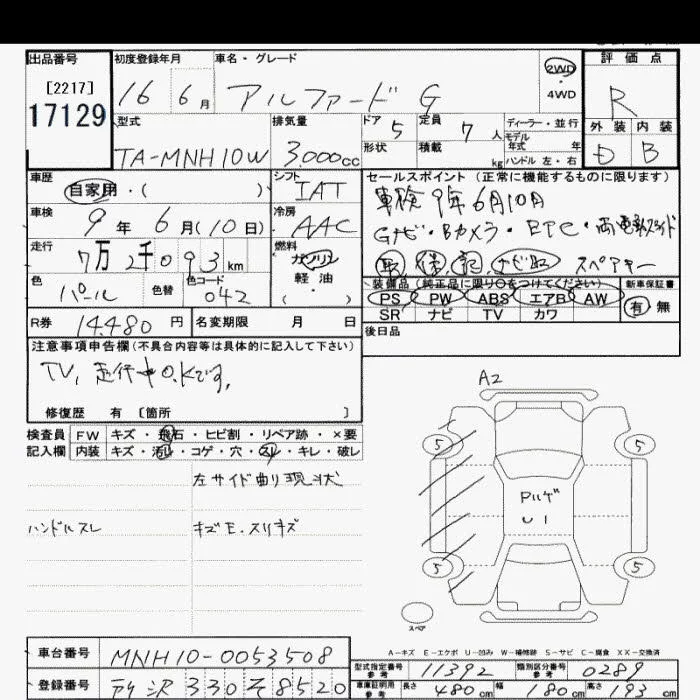 出品番号 初度登録年月 車名・グレード 2WD 評価点
[2217] 16 6月 アルファード G 4WD R
17129
型式 排気量 ドア 5 定員 7人 ディーラー・並行 外装 内装
TA-MNH10W 3.000cc 形状 積載 kg モデル年式 年 D B
ハンドル 左・右
車歴 シフト セールスポイント(正常に機能するものに限ります)
自家用・( ) IAT 車検 9年6月10月
車検 9年 6月(10日) 冷房 AAC Gナビ・Bカメラ・ETC・両電動スライド
走行 7万2千093km 燃料 ガソリン 取 保 記 ナビ取 スペアキー
色 パール 色替 色コード 042 軽・油 ( )
装備品(純正品に限り○をつけてください) 新車保証
PS PW ABS エアB AW 有 無
SR ナビ TV カワ
R券 14.480円 名変期限 月 日 後日品
注意事項申告欄(不具合内容等は具体的に記入して下さい)
TV,走行中O.Kです。
修復歴 有 〔箇所 〕
検査員 FW キズ・飛石・ヒビ割・リペア跡・×要
記入欄 内装 キズ・汚れ・コゲ・穴・スレ・キレ・破レ
左サイド曲り現状
ハンドルスレ キズE.スリキズ
A2
5 5
Pルーゲ
U1
5 5
スペア
A-キズ E-エクボ U-凹み W-補修跡 S-サビ C-腐食 XX-交換済
車台番号 MNH10-0053508
型式指定番号 参考 11392 類別区分番号 参考 0289
登録番号 所沢 330 そ 8520
車庫証明用 参考 長さ 480cm 幅 180cm 高さ 93cm